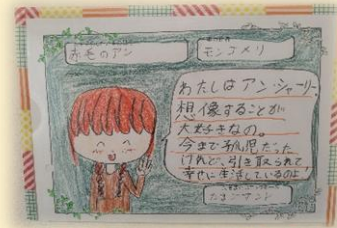 赤毛のアン
モンゴメリ
わたしはアン・シャーリー。
想像することが
大好きなの。
今まで孤児だった
けれど、引き取られて
幸せに生活しているのよ
たまごサンド